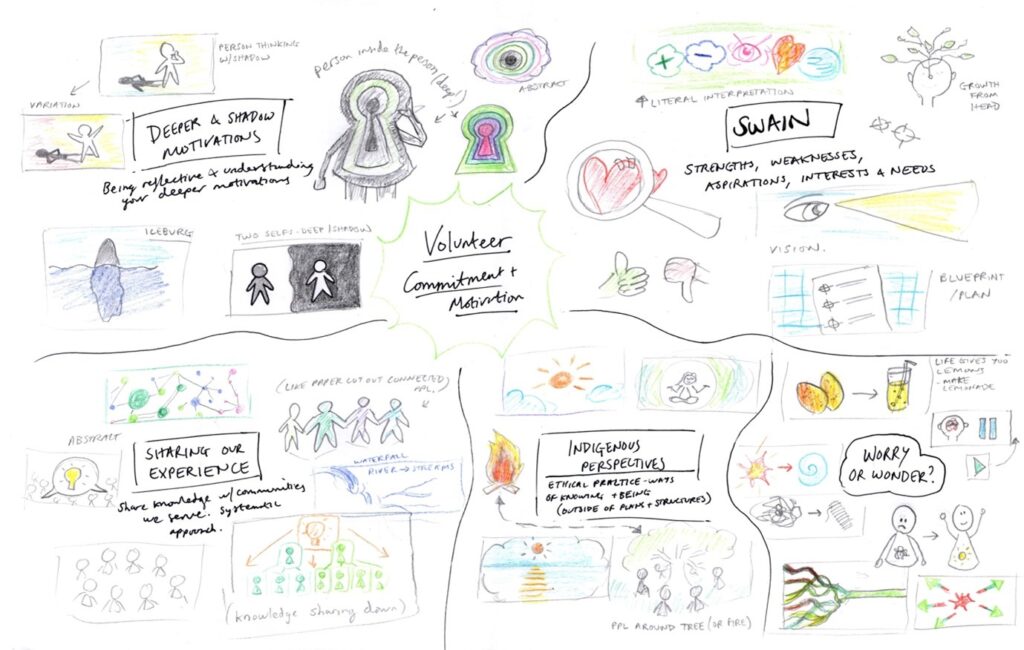 PERSON THINKING
W/SHADOW
VARIATION
DEEPER & SHADOW
MOTIVATIONS
Being reflective & understanding
your deeper motivations
person inside the person (deep)
ABSTRACT
ICEBURG
TWO SELFS-DEEP/SHADOW
Volunteer
Commitment +
Motivation
LITERAL INTERPRETATION
GROWTH
FROM
HEAD
SWAIN
STRENGTHS, WEAKNESSES,
ASPIRATIONS, INTERESTS & NEEDS
VISION.
BLUEPRINT
/PLAN
(LIKE PAPER CUT OUT CONNECTED
PPL.)
ABSTRACT
SHARING OUR
EXPERIENCE
Share knowledge w/communities
we serve. Systematic
approach.
WATERFALL
RIVER → STREAMS
(knowledge sharing down)
INDIGENOUS
PERSPECTIVES
ETHICAL PRACTICE-WAYS
OF KNOWING + BEING
(OUTSIDE OF PLANS + STRUCTURES)
PPL AROUND TREE (OR FIRE)
LIFE GIVES YOU
LEMONS
- MAKE
LEMONADE
WORRY
OR WONDER?